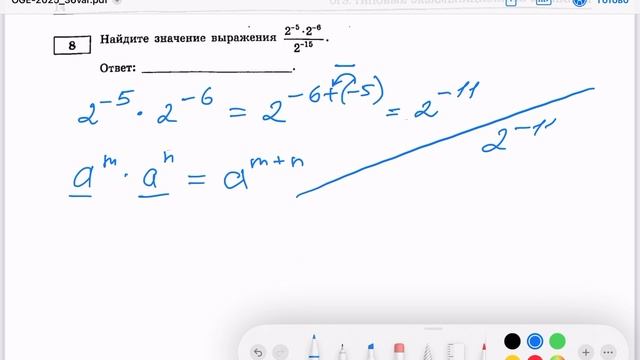 OGE-2025_36var.pdf
Готово
8 Найдите значение выражения 2⁻⁵·2⁻⁶ / 2⁻¹⁵ .
Ответ: ____________________.
2⁻⁵ · 2⁻⁶ = 2⁻⁶⁺⁽⁻⁵⁾ = 2⁻¹¹
2⁻¹¹
aᵐ · aⁿ = aᵐ⁺ⁿ